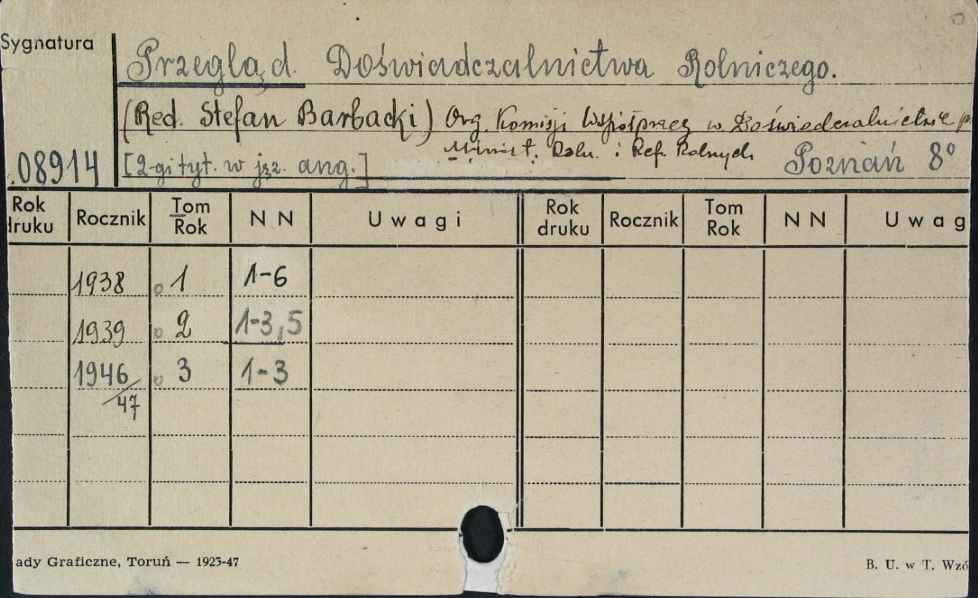 Sygnatura
Przegląd Doświadczalnictwa Rolniczego.
(Red. Stefan Barbacki) Org. Komisji Współpracy w Doświadczalnictwie p.
Minist. Roln. i Ref. Rolnych
08914 [2-gi tyt. w jęz. ang.] Poznań 8°
Rok druku Rocznik Tom Rok N N Uwagi Rok druku Rocznik Tom Rok N N Uwag
1938 1 1-6
1939 2 1-3,5
1946/47 3 1-3
ady Graficzne, Toruń — 1925-47 B. U. w T. Wzó